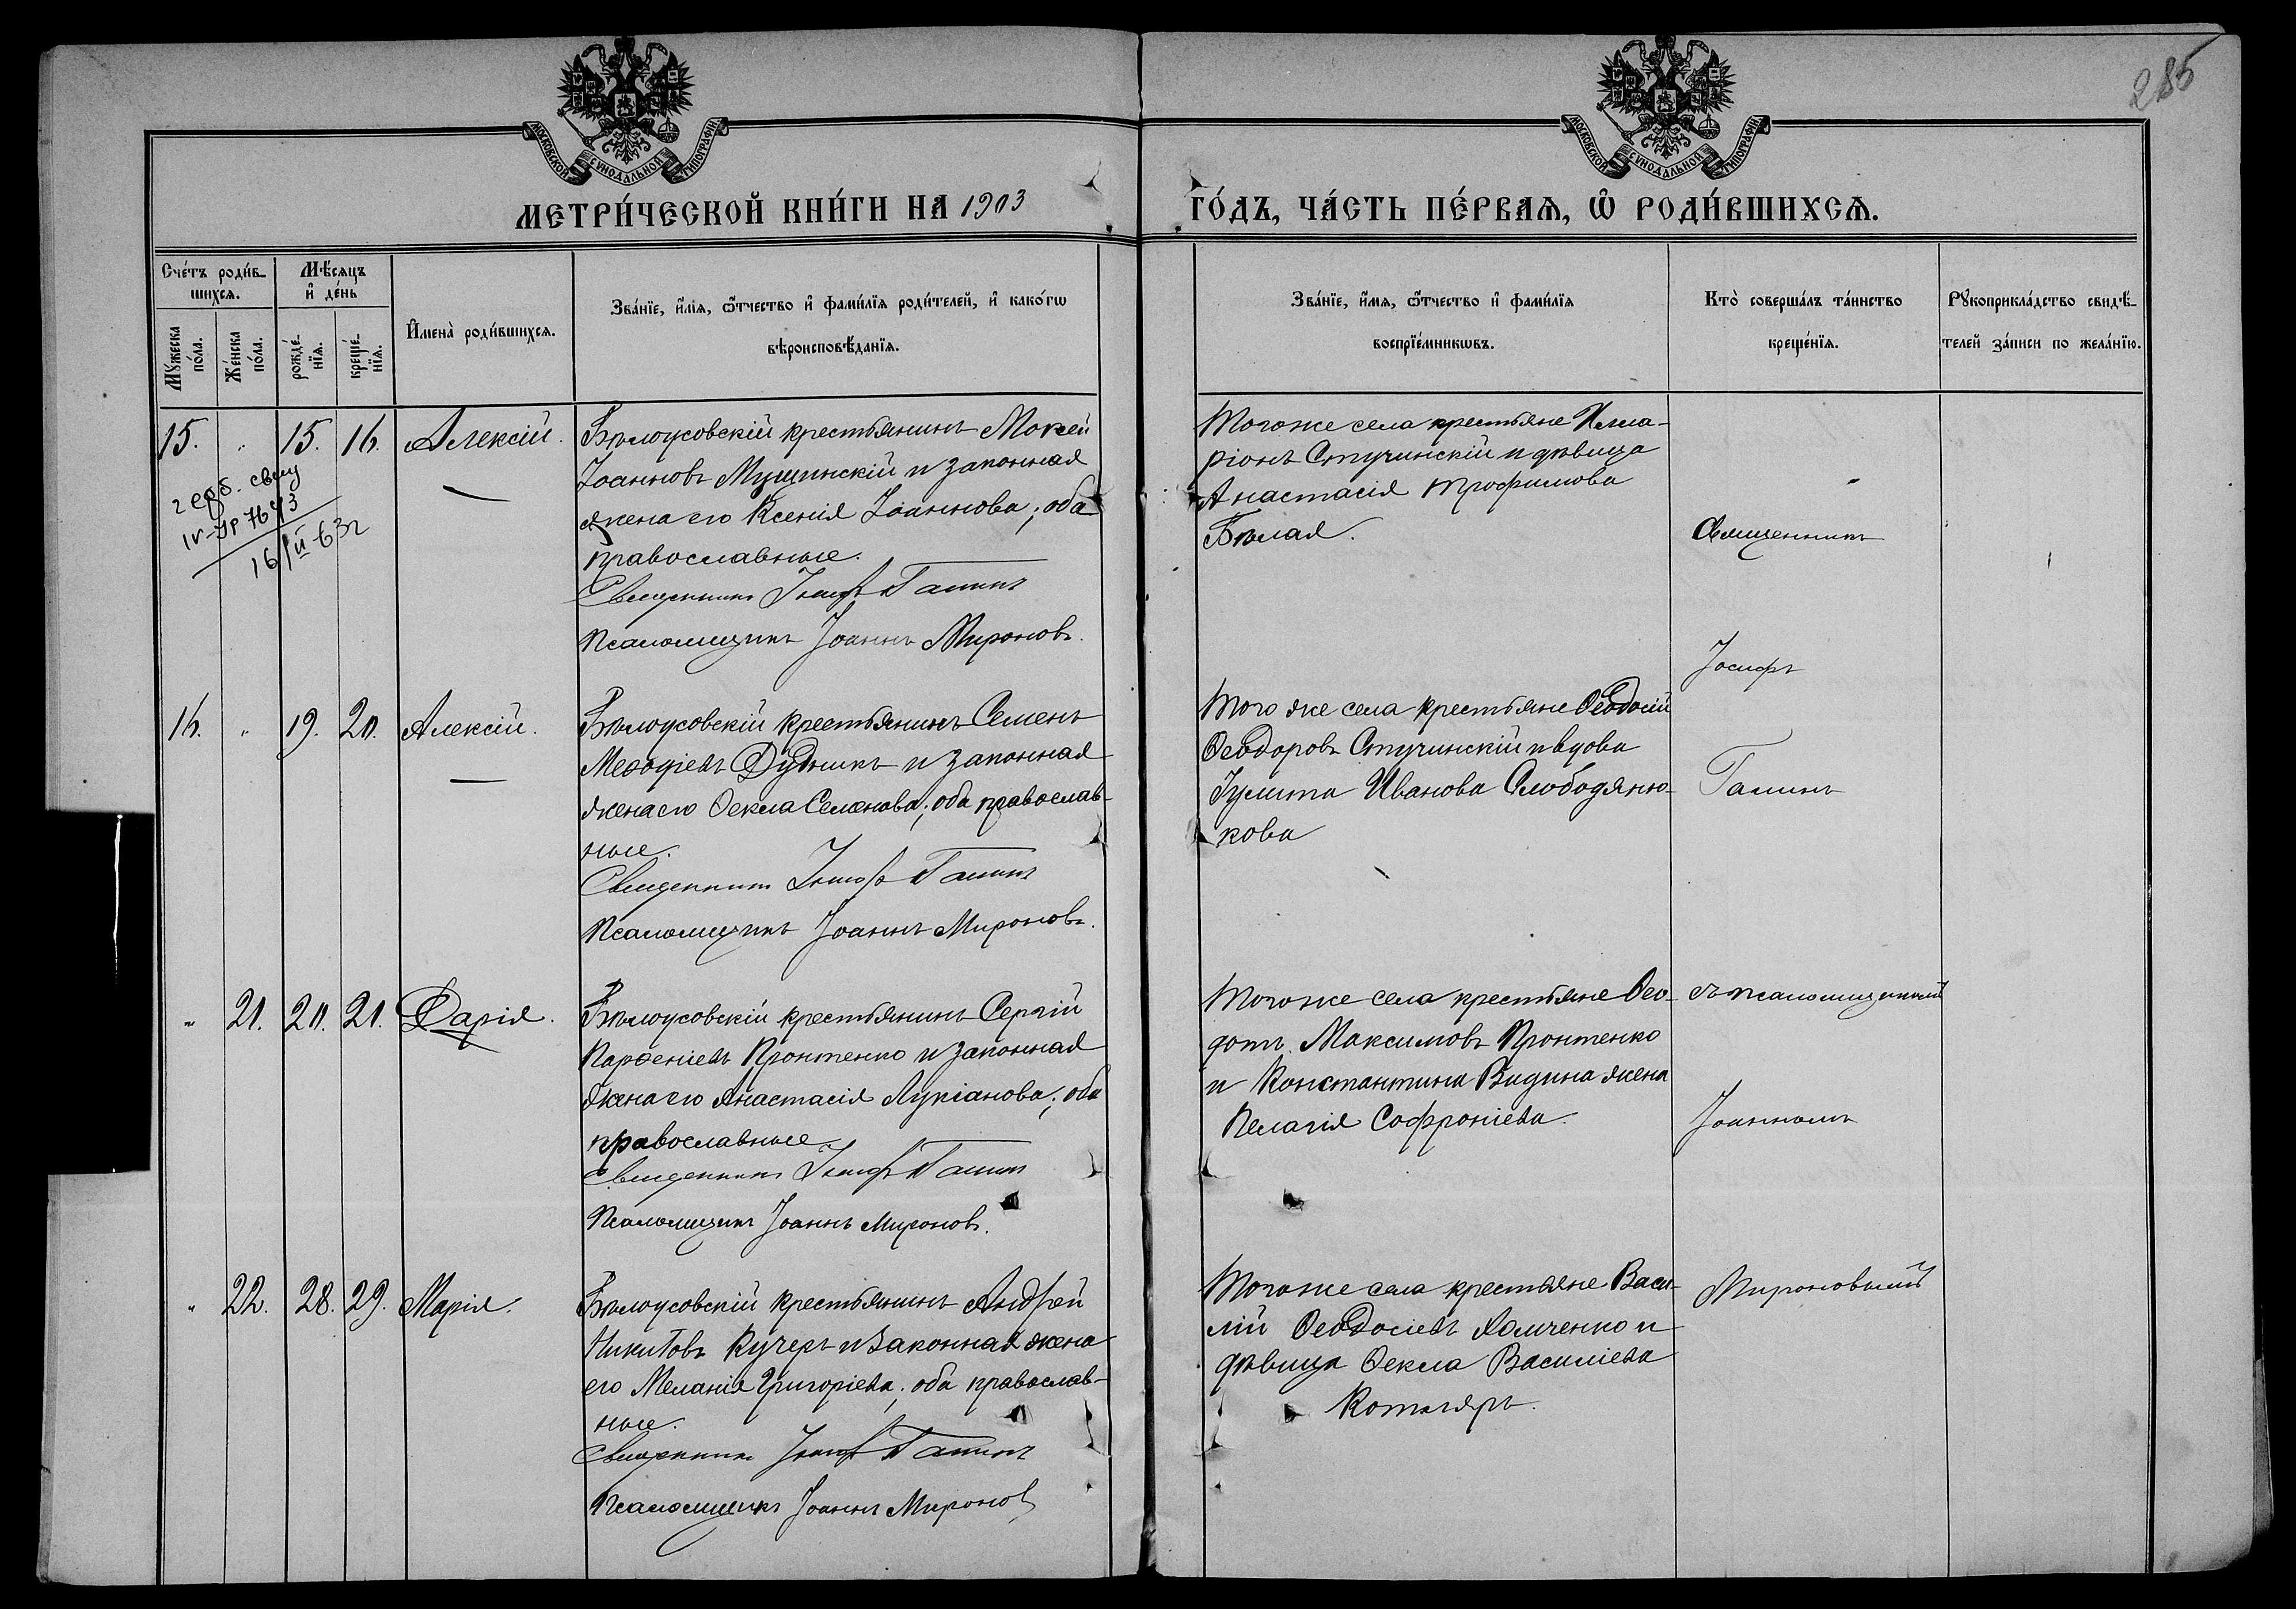 285
МОСКОВСКОЙ СУНОДАЛЬНОЙ ТИПОГРАФІИ
МОСКОВСКОЙ СУНОДАЛЬНОЙ ТИПОГРАФІИ
МЕТРИ́ЧЕСКОЙ КНИ́ГИ НА 1903
ГО́ДЪ, ЧА́СТЬ ПЕ́РВАѦ, Ѡ҆ РОДИ́ВШИХСѦ.
Сче́тъ роди́в-
шихсѧ.
Мѣ́сѧцъ
и҆ де́нь
Мꙋ́жеска по́ла.
Же́нска по́ла.
рожде́-
нїѧ.
креще́-
нїѧ.
И҆мена̀ роди́вшихсѧ.
Зва́нїе, и҆́мѧ, ѻ҆́тчество и҆ фами́лїѧ роди́телей, и҆ како́гѡ
вѣроисповѣ́данїѧ.
Зва́нїе, и҆́мѧ, ѻ҆́тчество и҆ фами́лїѧ
воспрїе́мникѡвъ.
Кто̀ соверша́лъ та́инство
креще́нїѧ.
Рꙋкоприкла́дство свидѣ́-
телей за́писи по жела́нїю.
15. " 15. 16. Алексій.
16/II-63г
Бѣлоусовскій крестьянинъ Мокей
Іоанновъ Мущинскій и законная
жена его Ксенія Іоаннова; оба
православные.
Священникъ Іосифъ Гапинъ
Псаломщикъ Іоаннъ Мироновъ.
Того же села крестьяне Илла-
ріонъ Стучинскій и дѣвица
Анастасія Трофимова
Бѣлая.
Священникъ
Іосифъ
16. " 19. 20. Алексій.
Бѣлоусовскій крестьянинъ Семенъ
Меѳодіевъ Дудникъ и законная
жена его Ѳекла Семенова; оба православ-
ные.
Священникъ Іосифъ Гапинъ
Псаломщикъ Іоаннъ Мироновъ.
Того же села крестьяне Ѳеодосій
Ѳеодоровъ Стучинскій и вдова
Іулита Иванова Слободяню-
кова
Гапинъ
" 21. 20. 21. Дарія.
Бѣлоусовскій крестьянинъ Сергій
Парѳеніевъ Пронтенко и законная
жена его Анастасія Лукіанова; оба
православные.
Священникъ Іосифъ Гапинъ
Псаломщикъ Іоаннъ Мироновъ.
Того же села крестьяне Ѳео-
дотъ Максимовъ Пронтенко
и Константина Видина жена
Пелагія Софроніева.
съ псаломщикомъ
Іоанномъ
" 22. 28. 29. Марія.
Бѣлоусовскій крестьянинъ Андрей
Никитовъ Кучеръ и законная жена
его Меланія Григоріева; оба православ-
ные.
Священникъ Іосифъ Гапинъ
Псаломщикъ Іоаннъ Мироновъ
Того же села крестьяне Васи-
лій Ѳеодосіевъ Хомченко и
дѣвица Ѳекла Василіева
Котляръ.
Мироновымъ